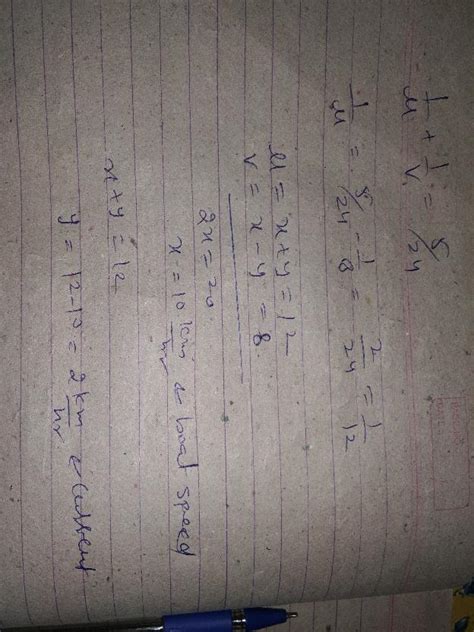 1/u + 1/v = 5/24
1/u = 5/24 - 1/8 = 2/24 = 1/12
u = x + y = 12
v = x - y = 8
2x = 20
x = 10 km/hr ← boat speed
x + y = 12
y = 12 - 10 = 2 km/hr ← current